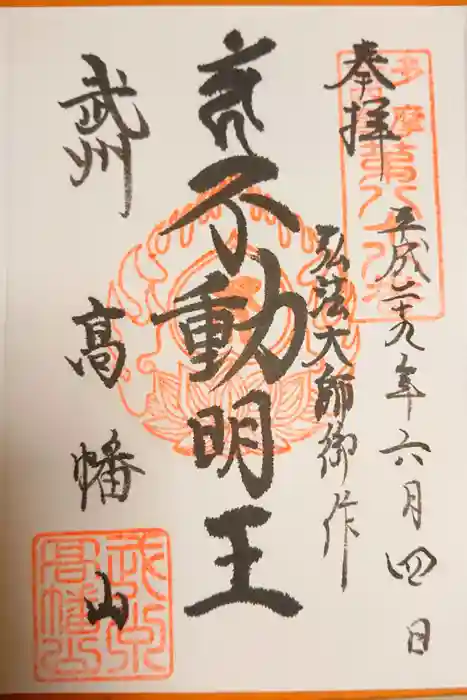 奉拝
多摩
第八十八番
平成二十九年六月四日
弘法大師御作
不動明王
武州
高幡山